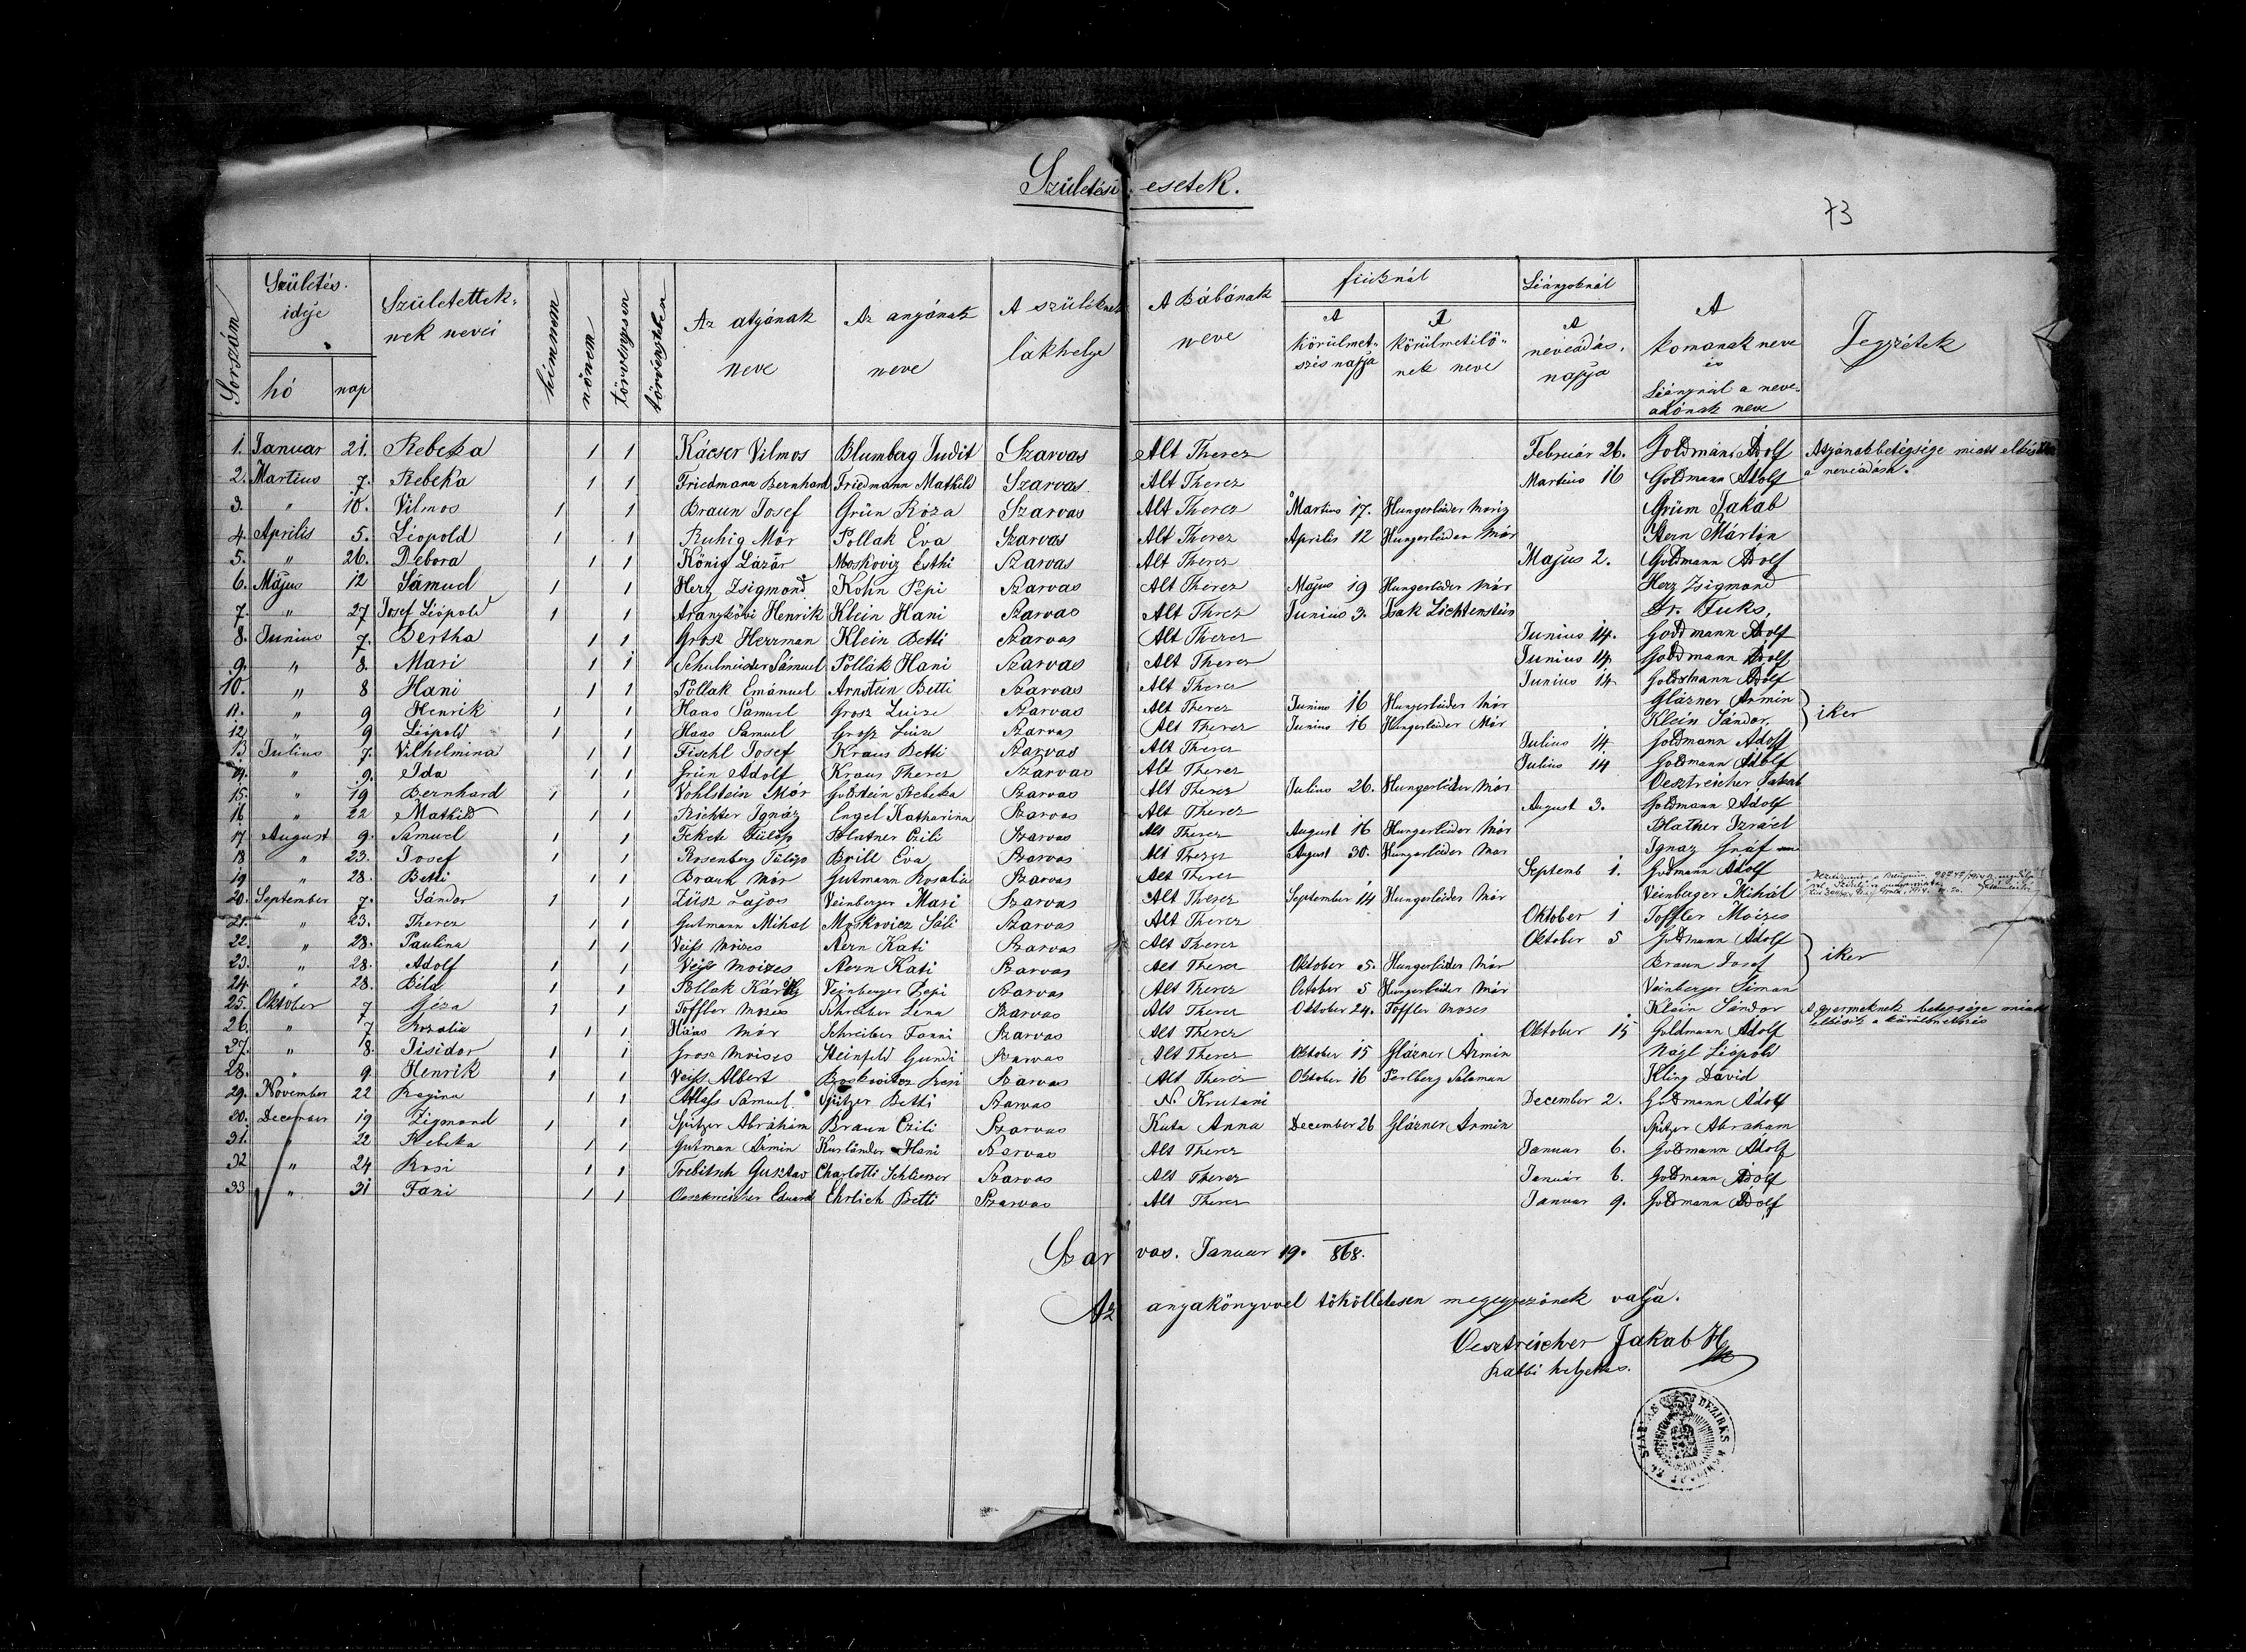 Születési esetek.
73
Sorszám
Születés ideje
hó
nap
Születettek-
nek nevei
hímnem
nőnem
törvényesen
Az atyának
neve
Az anyának
neve
A szülőknek
lakhelye
A Bábának
neve
fiúknál
A
körülmet-
szés napja
A
körülmetélő-
nek neve
Leányoknál
A
neveadás
napja
A
komának neve
és
Leánynál a neve-
adónak neve
Jegyzétek
1. Januar 21. Rebeka 1 1 Kácser Vilmos Blumberg Judit Szarvas Alt Therez Február 26. Goldmann Adolf Atyának betegsége miatt
a neveadása.
2. Martius 7. Rebeka 1 1 Friedmann Bernhard Friedmann Mathild Szarvas Alt Therez Martius 16 Goldmann Adolf
3. " 10. Vilmos 1 1 Braun Josef Grün Róza Szarvas Alt Therez Martius 17. Hungerleider Móriz Grüm Jakab
4. Aprilis 5. Léopold 1 1 Ruhig Mór Pollak Éva Szarvas Alt Therez Aprilis 12 Hungerleider Mór Stern Márton
5. " 26. Debora 1 1 König Lázár Moskoviz Esthi Szarvas Alt Therez Majus 2. Goldmann Adolf
6. Május 12 Sámuel 1 1 Herz Zsigmond Kohn Pepi Szarvas Alt Therez Május 19 Hungerleider Mór Herz Zsigmond
7. " 27 Josef Léopold 1 1 Aranykövi Henrik Klein Hani Szarvas Alt Therez Junius 3. Isak Lichtenstein Dr. Fuks.
8. Junius 7. Bertha 1 1 Grosz Herrman Klein Betti Szarvas Alt Therez Junius 14. Goldmann Adolf
9. " 8. Mari 1 1 Schulmeister Sámuel Pollák Hani Szarvas Alt Therez Junius 14 Goldmann Adolf
10. " 8 Hani 1 1 Pollak Emánuel Arnstein Betti Szarvas Alt Therez Junius 14 Goldmann Adolf
11. " 9 Henrik 1 1 Haas Samuel Grosz Luize Szarvas Alt Therez Junius 16 Hungerleider Mór Glázner Armin iker
12. " 9 Léopold 1 1 Haas Samuel Grosz Luize Szarvas Alt Therez Junius 16 Hungerleider Mór Klein Sándor
13 Julius 7. Vilhelmina 1 1 Fischl Josef Kraus Betti Szarvas Alt Therez Julius 14 Goldmann Adolf
14. " 9. Ida 1 1 Grün Adolf Kraus Therez Szarvas Alt Therez Julius 14 Goldmann Adolf
15. " 19 Bernhard 1 1 Vohlstein Mór Goldstein Rebeka Szarvas Alt Therez Julius 26. Hungerleider Mór Oesztreicher Jakab
16. " 22 Mathild 1 1 Richter Ignáz Engel Katharina Szarvas Alt Therez August 3. Goldmann Adolf
17 August 9. Samuel 1 1 Fekete Fülöp Blatner Czili Szarvas Alt Therez August 16 Hungerleider Mór Blatner Izráel
18 " 23. Josef 1 1 Rosenberg Fülöp Brill Éva Szarvas Alt Therez August 30. Hungerleider Mor Ignaz Gráf
19 " 28. Betti 1 1 Braun Mór Gutmann Rosalia Szarvas Alt Therez Septemb 1. Goldmann Adolf
20. September 7. Sándor 1 1 Züsz Lajos Veinberger Mari Szarvas Alt Therez September 14 Hungerleider Mór Veinberger Mihál
21. " 23. Therez 1 1 Gutmann Mihal Moskovicz Sáli Szarvas Alt Therez Oktober 1 Toffler Moizes
22. " 28. Paulina 1 1 Veisz Moizes Stern Kati Szarvas Alt Therez Oktober 5 Goldmann Adolf iker
23. " 28. Adolf 1 1 Veisz Moizes Stern Kati Szarvas Alt Therez Oktober 5. Hungerleider Mór Braun Josef
24 " 28. Béla 1 1 Pollak Károly Veinberger Pepi Szarvas Alt Therez October 5 Hungerleider Mór Veinberger Simon
25. Oktober 7 Géza 1 1 Toffler Mozes Schreiber Lena Szarvas Alt Therez Oktober 24. Toffler Moses Klein Sándor A gyermeknek betegsége miatt
elkésett a körülmetszés
26. " 7 Rozalia 1 1 Haas Mór Schreiber Fanni Szarvas Alt Therez Oktober 15 Goldmann Adolf
27. " 8. Jisidor 1 1 Grosz Moises Steinfeld Gundi Szarvas Alt Therez Oktober 15 Glázner Armin Nágl Léopold
28. " 9 Henrik 1 1 Veisz Albert Boskovitz Szarvas Alt Therez Oktober 16 Perlberg Salaman Kling David
29. November 22 Regina 1 1 Atlasz Samuel Spitzer Betti Szarvas N. Krutani December 2. Goldmann Adolf
30. December 19 Zigmond 1 1 Spitzer Abrahám Braun Czili Szarvas Kuta Anna December 26 Glázner Armin Spitzer Abraham
31. " 22 Rebeka 1 1 Gutman Armin Kurländer Hani Szarvas Alt Therez Januar 6. Goldmann Adolf
32 " 24 Rosi 1 1 Trebitsch Gusztav Charlotti Schlesner Szarvas Alt Therez Január 6. Goldmann Adolf
33 " 31 Fani 1 1 Oesztreicher Eduard Ehrlich Betti Szarvas Alt Therez Januar 9. Goldmann Adolf
Szarvas. Januar 19. 868.
Az anyakönyvvel tökölletesen megegyezőnek valja.
Oesztreicher Jakab
Rabbi helyettes.